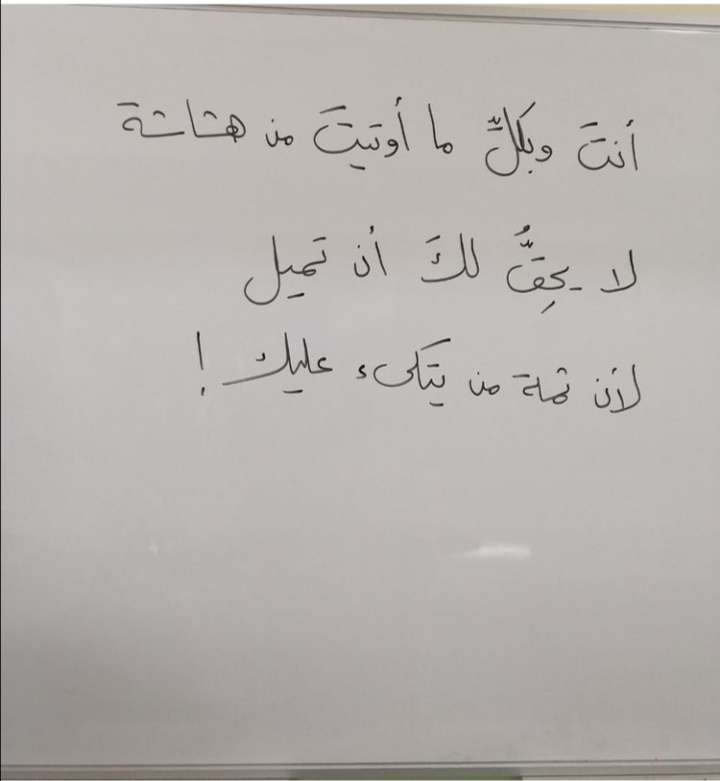 أنتَ وبكلِّ ما أوتيتَ من هشاشة
لا يحِقُّ لكَ أن تميل
لأن ثمة من يتكىء عليك !